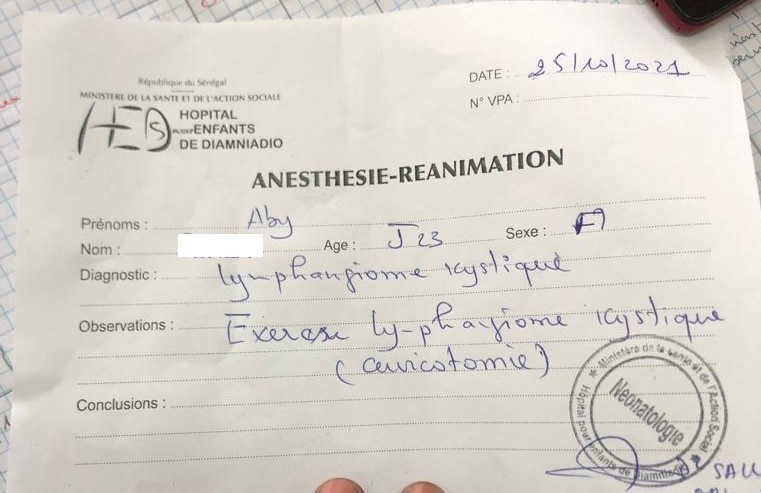 République du Sénégal
MINISTERE DE LA SANTE ET DE L'ACTION SOCIALE
HOPITAL
ENFANTS
DE DIAMNIADIO
DATE : 25/10/2021
N° VPA :
ANESTHESIE-REANIMATION
Prénoms : Aby
Nom : Age : J23 Sexe : F
Diagnostic : Lymphangiome kystique
Observations : Exerese lymphagiome kystique
(cervicotomie)
Conclusions :
Ministère de la santé et de l'Action Social
Neonatologie
Hôpital pour enfants de Diamniadio
SALL